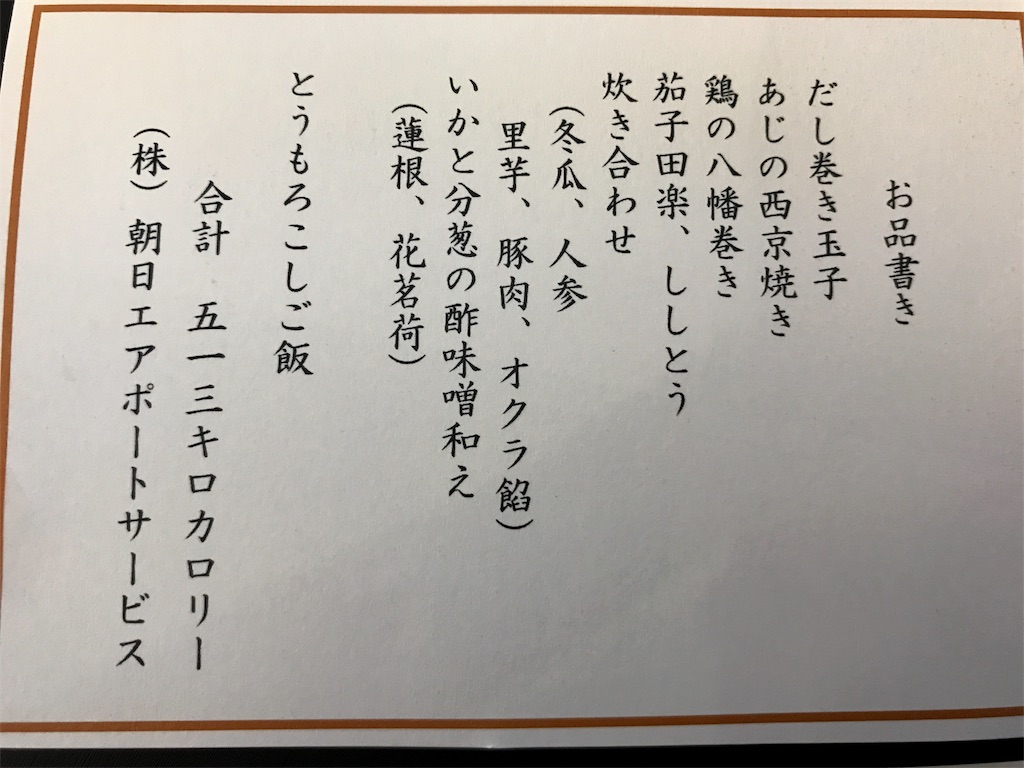 お品書き
だし巻き玉子
あじの西京焼き
鶏の八幡巻き
茄子田楽、ししとう
炊き合わせ
（冬瓜、人参
里芋、豚肉、オクラ餡）
いかと分葱の酢味噌和え
（蓮根、花茗荷）
とうもろこしご飯
合計　五一三キロカロリー
（株）朝日エアポートサービス